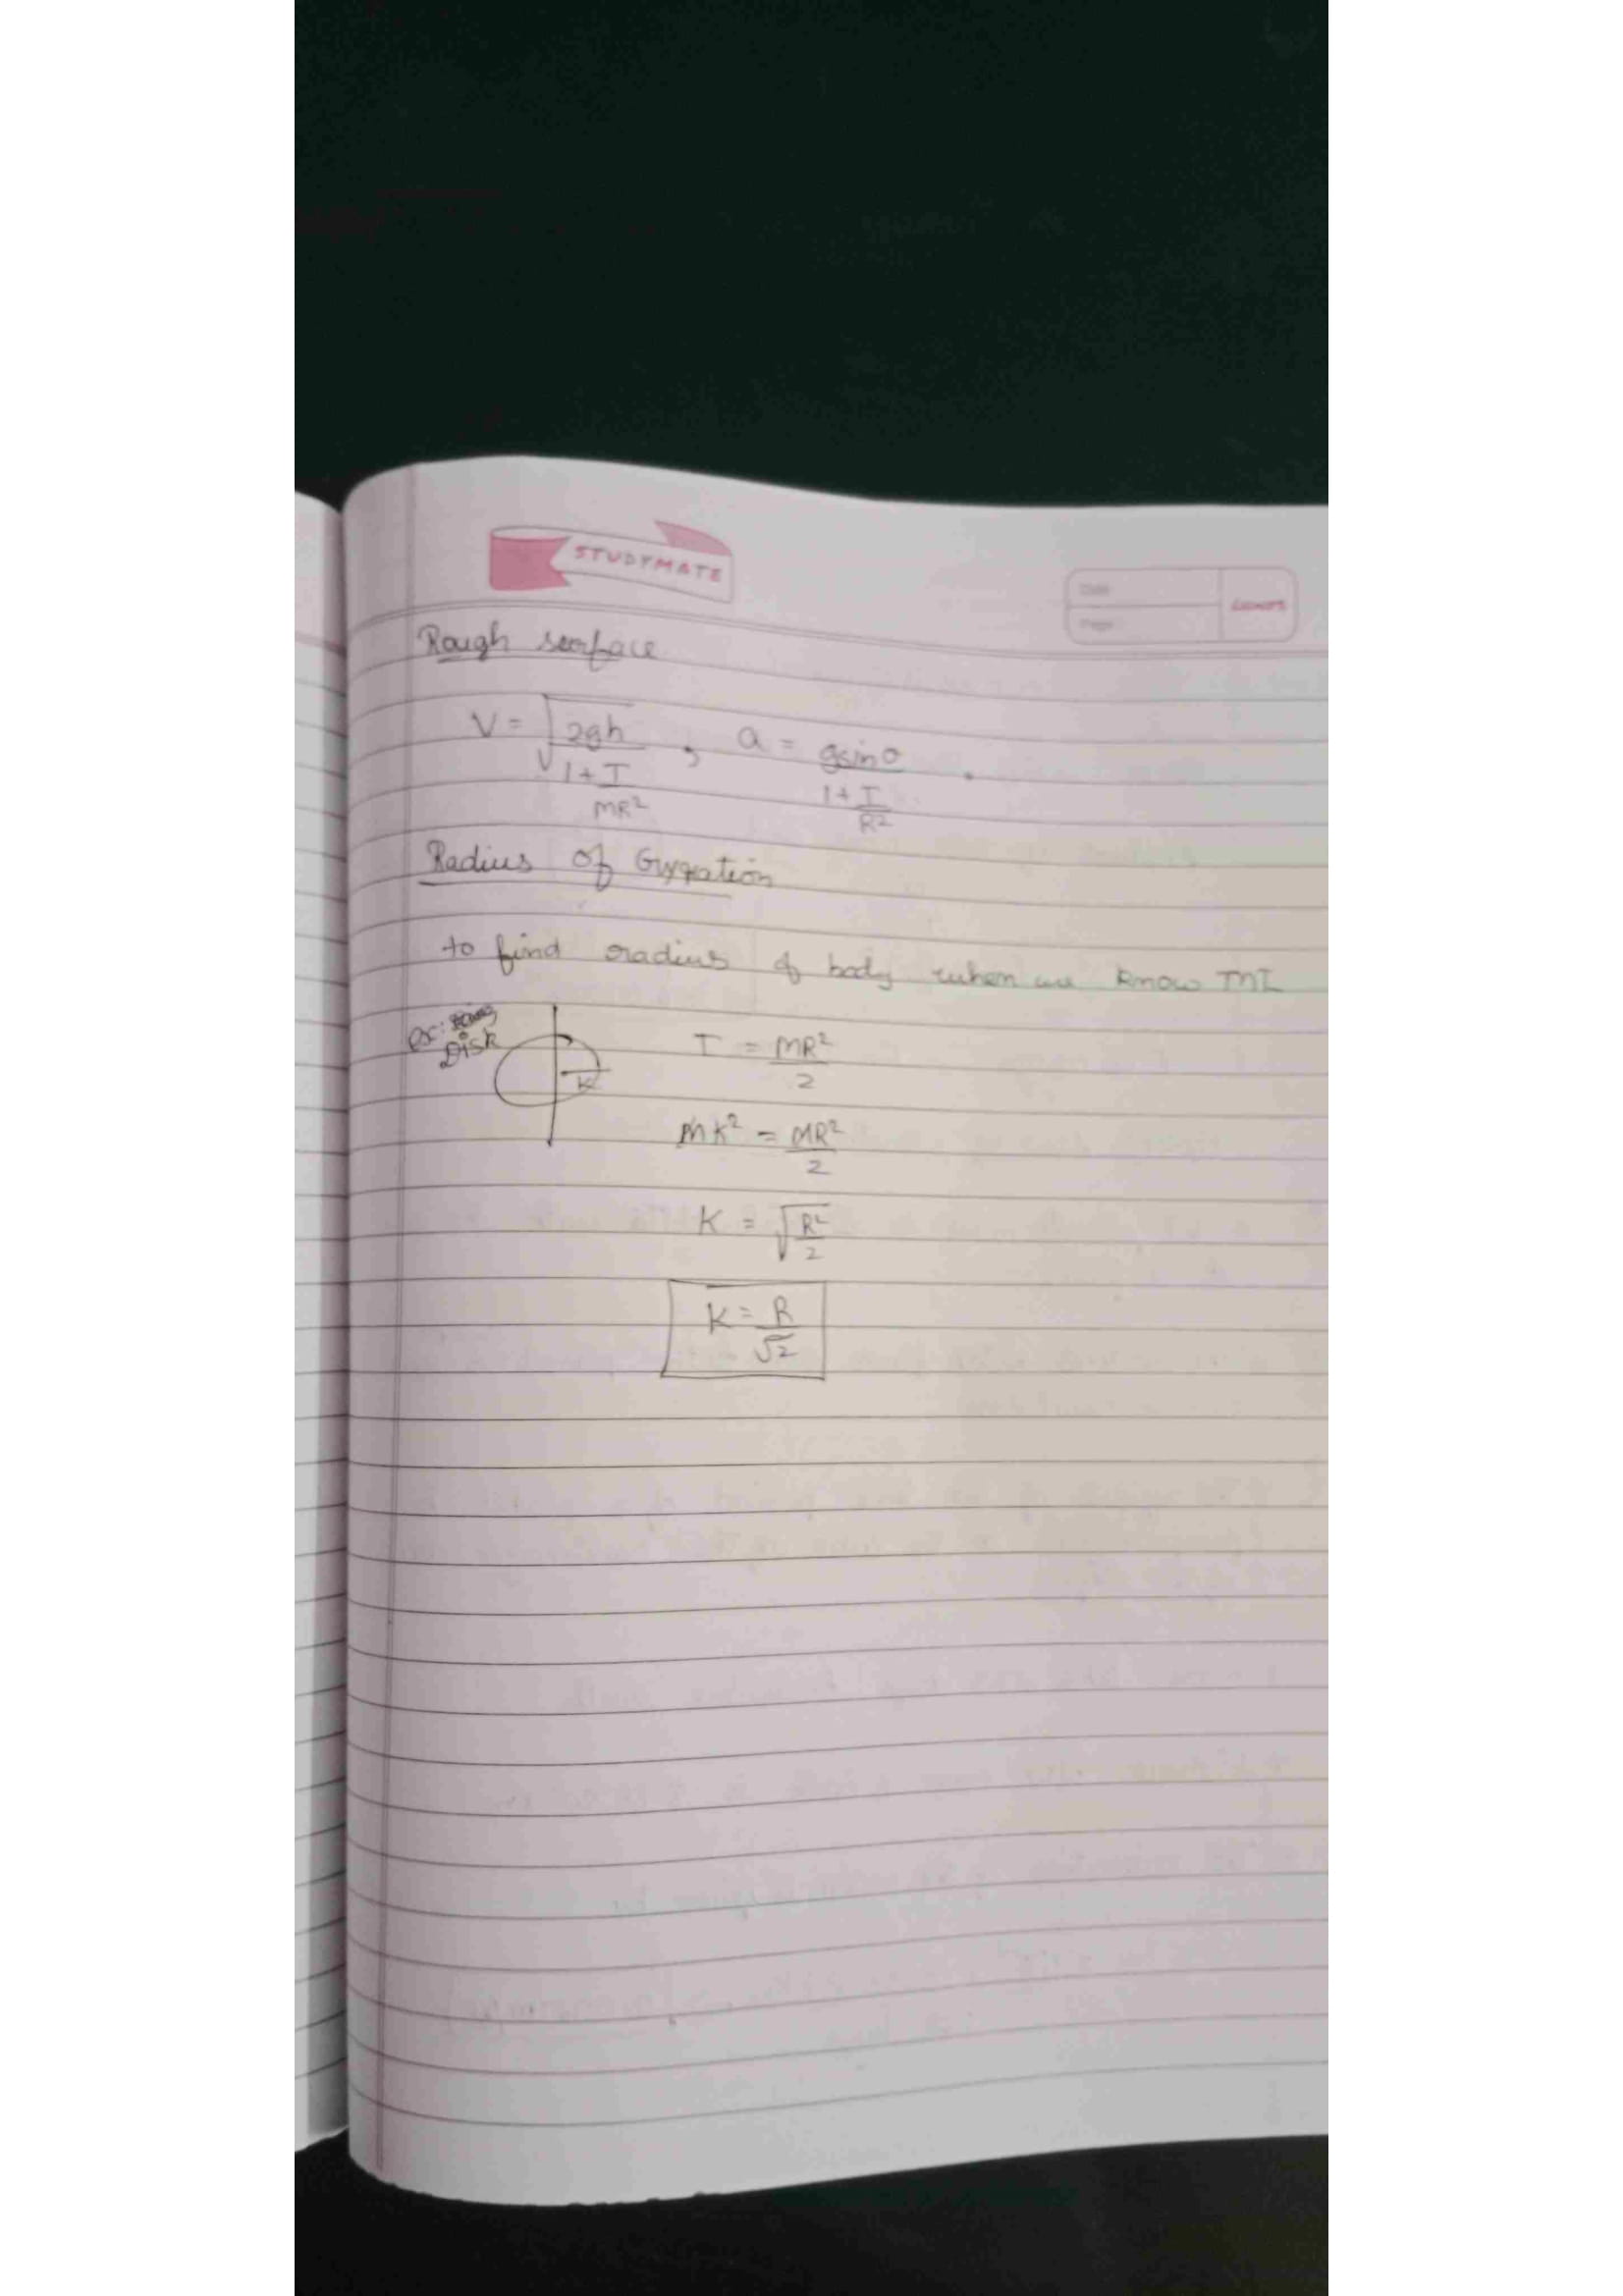 STUDYMATE
Date
Page
Rough surface
V = √(2gh / (1 + I/MR²)) , a = gsinθ / (1 + I/R²) .
Radius of Gyration
to find radius of body when we know MI
ex:
Disk
K
I = MR²/2
mK² = MR²/2
K = √(R²/2)
K = R/√2